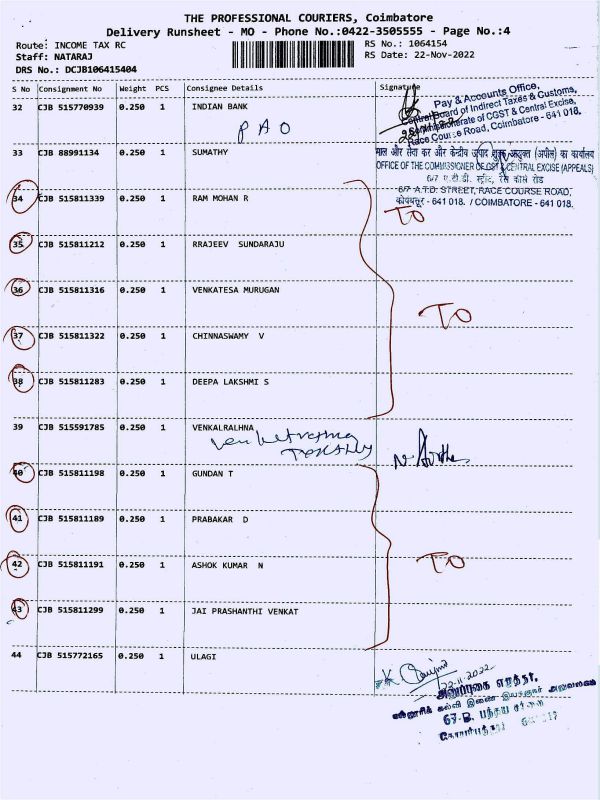 THE PROFESSIONAL COURIERS, Coimbatore
Delivery Runsheet - MO - Phone No.:0422-3505555 - Page No.:4
Route: INCOME TAX RC RS No.: 1064154
Staff: NATARAJ RS Date: 22-Nov-2022
DRS No.: DCJB106415404
S No Consignment No Weight PCS Consignee Details Signature
32 CJB 515770939 0.250 1 INDIAN BANK
PAO
Pay & Accounts Office,
Central Board of Indirect Taxes & Customs,
Commissionerate of CGST & Central Excise,
Race Course Road, Coimbatore - 641 018.
33 CJB 88991134 0.250 1 SUMATHY
माल और सेवा कर और केन्द्रीय उत्पाद शुल्क आयुक्त (अपील) का कार्यालय
OFFICE OF THE COMMISSIONER OF GST & CENTRAL EXCISE (APPEALS)
6/7 ए.टी.डी. स्ट्रीट, रेस कोर्स रोड
6/7 A.T.D. STREET, RACE COURSE ROAD,
कोयम्बत्तूर - 641 018. / COIMBATORE - 641 018.
34 CJB 515811339 0.250 1 RAM MOHAN R
TO
35 CJB 515811212 0.250 1 RRAJEEV SUNDARAJU
36 CJB 515811316 0.250 1 VENKATESA MURUGAN
TO
37 CJB 515811322 0.250 1 CHINNASWAMY V
38 CJB 515811283 0.250 1 DEEPA LAKSHMI S
39 CJB 515591785 0.250 1 VENKALRALHNA
40 CJB 515811198 0.250 1 GUNDAN T
41 CJB 515811189 0.250 1 PRABAKAR D
42 CJB 515811191 0.250 1 ASHOK KUMAR N
TO
43 CJB 515811299 0.250 1 JAI PRASHANTHI VENKAT
44 CJB 515772165 0.250 1 ULAGI
22-11-2022
கல்லூரிக் கல்வி இணை இயக்குநர் அலுவலகம்
67-B, பந்தய சாலை